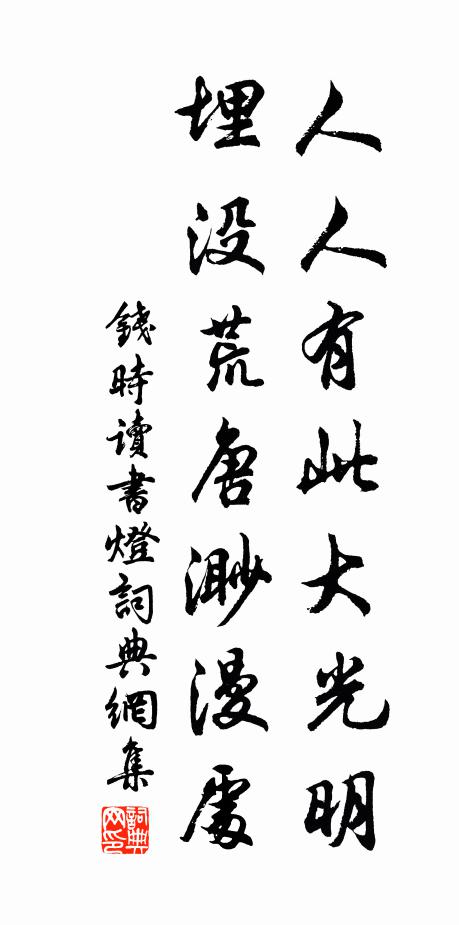 人人有此大光明
埋没荒唐渺漫處
錢時讀書燈詞典網集
詞典網印